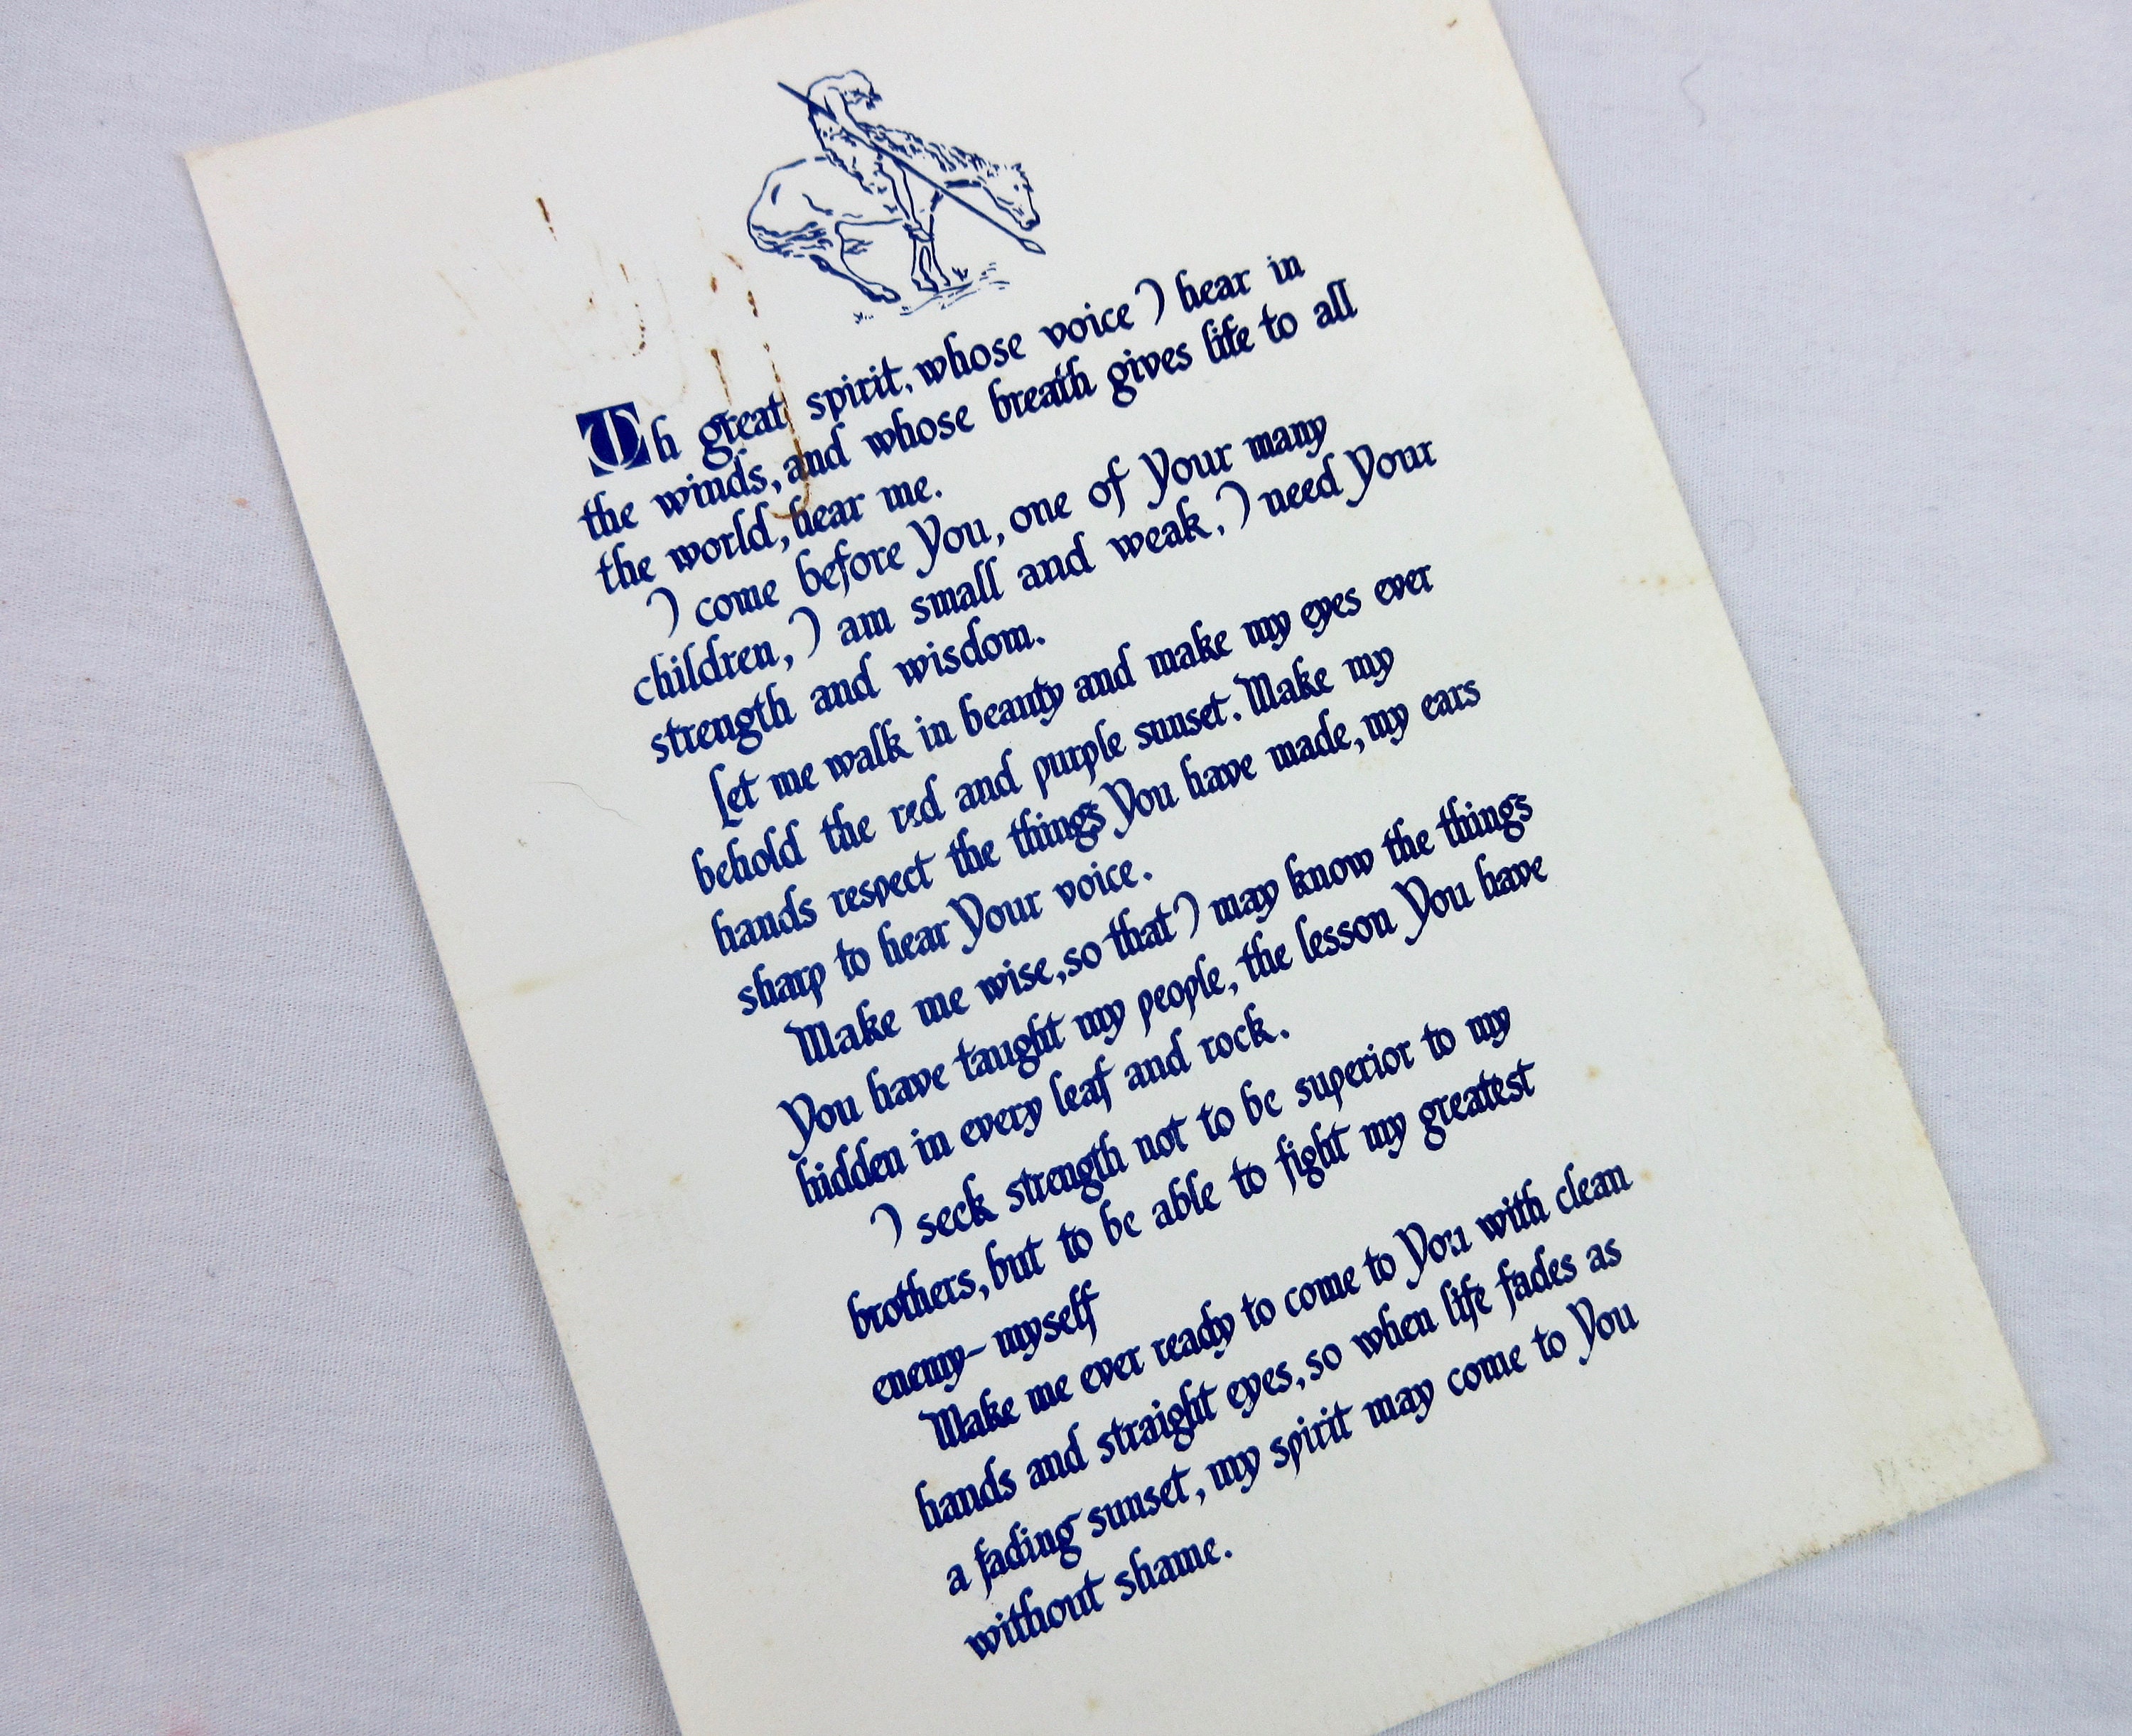 Oh great spirit, whose voice I hear in
the winds, and whose breath gives life to all
the world, hear me.
I come before You, one of Your many
children, I am small and weak, I need Your
strength and wisdom.
Let me walk in beauty and make my eyes ever
behold the red and purple sunset. Make my
hands respect the things You have made, my ears
sharp to hear Your voice.
Make me wise, so that I may know the things
You have taught my people, the lesson You have
hidden in every leaf and rock.
I seek strength not to be superior to my
brothers, but to be able to fight my greatest
enemy - myself
Make me ever ready to come to You with clean
hands and straight eyes, so when life fades as
a fading sunset, my spirit may come to You
without shame.